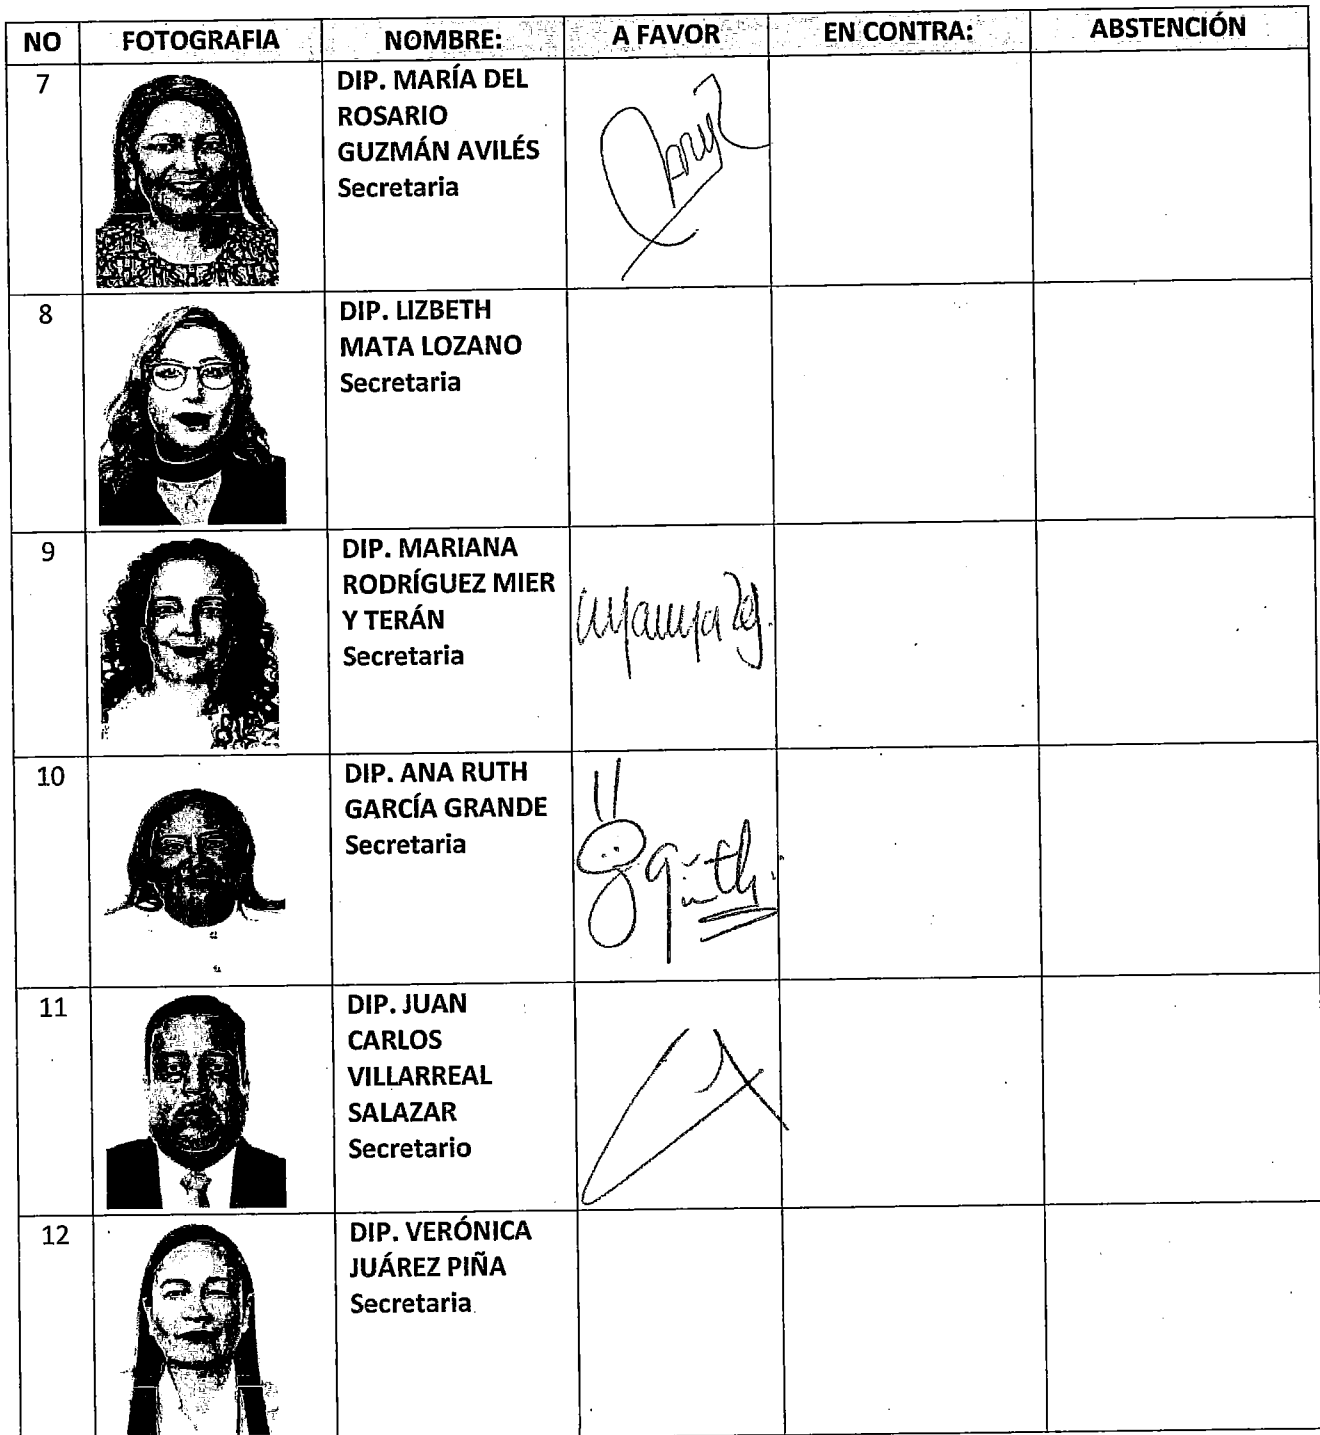 NO FOTOGRAFIA NOMBRE: A FAVOR EN CONTRA: ABSTENCIÓN
7 DIP. MARÍA DEL
ROSARIO
GUZMÁN AVILÉS
Secretaria
8 DIP. LIZBETH
MATA LOZANO
Secretaria
9 DIP. MARIANA
RODRÍGUEZ MIER
Y TERÁN
Secretaria
10 DIP. ANA RUTH
GARCÍA GRANDE
Secretaria
11 DIP. JUAN
CARLOS
VILLARREAL
SALAZAR
Secretario
12 DIP. VERÓNICA
JUÁREZ PIÑA
Secretaria